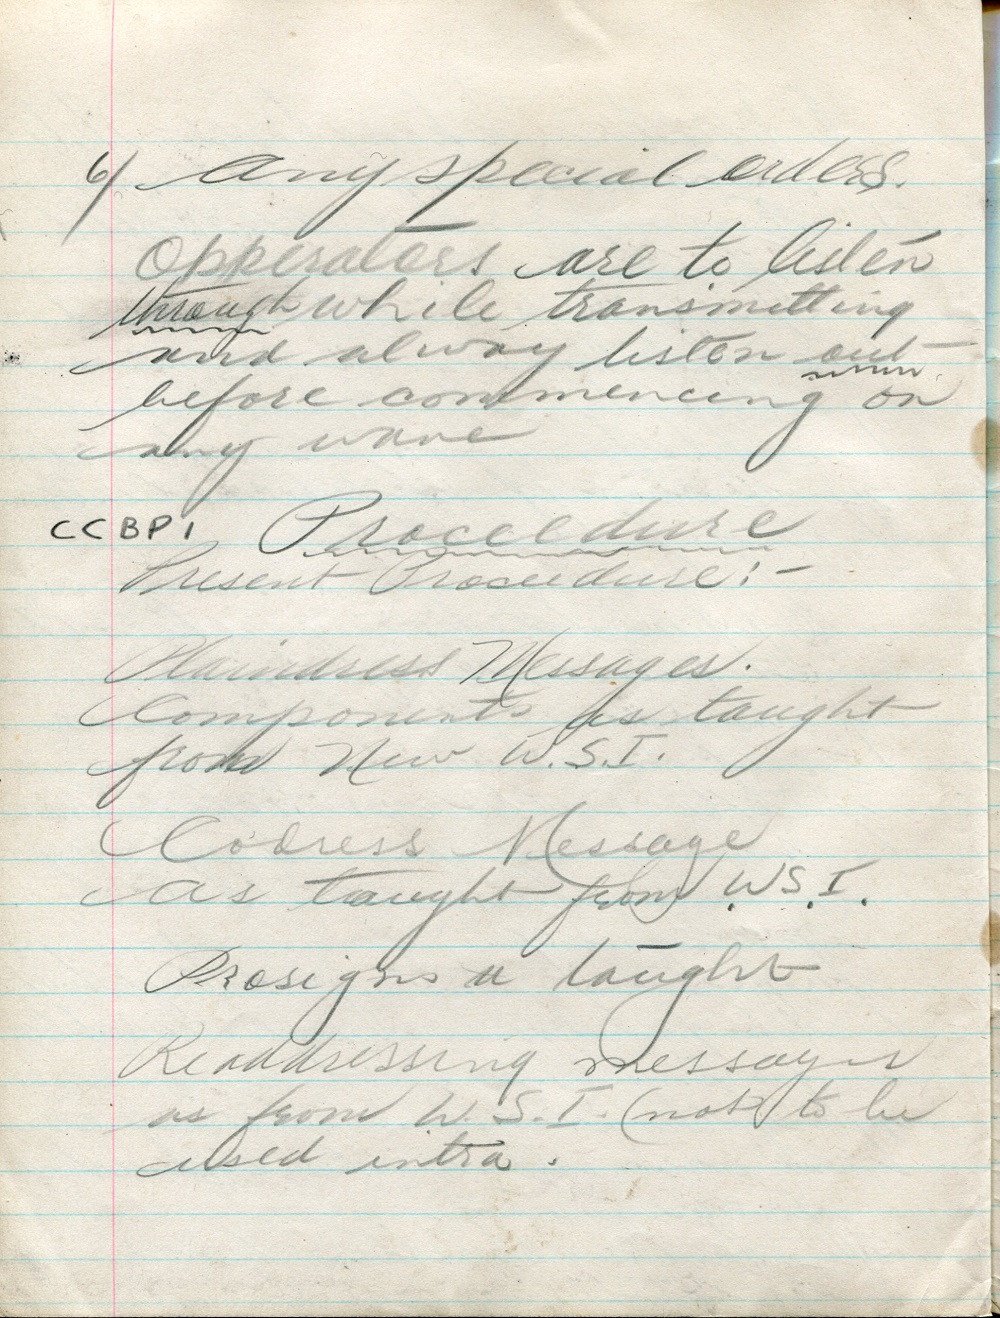 6/ Any special orders.
Opperators are to listen
through while transmitting
and alway listen out
before commencing on
any wave
CCBP1 Proceedure
Present Proceedure:-
Plaindress Messages.
Components as taught
from New W.S.I.
Codress Message
as taught from W.S.I.
Prosigns as taught
Readdressing messages
as from W.S.I. (not to be
used intra.